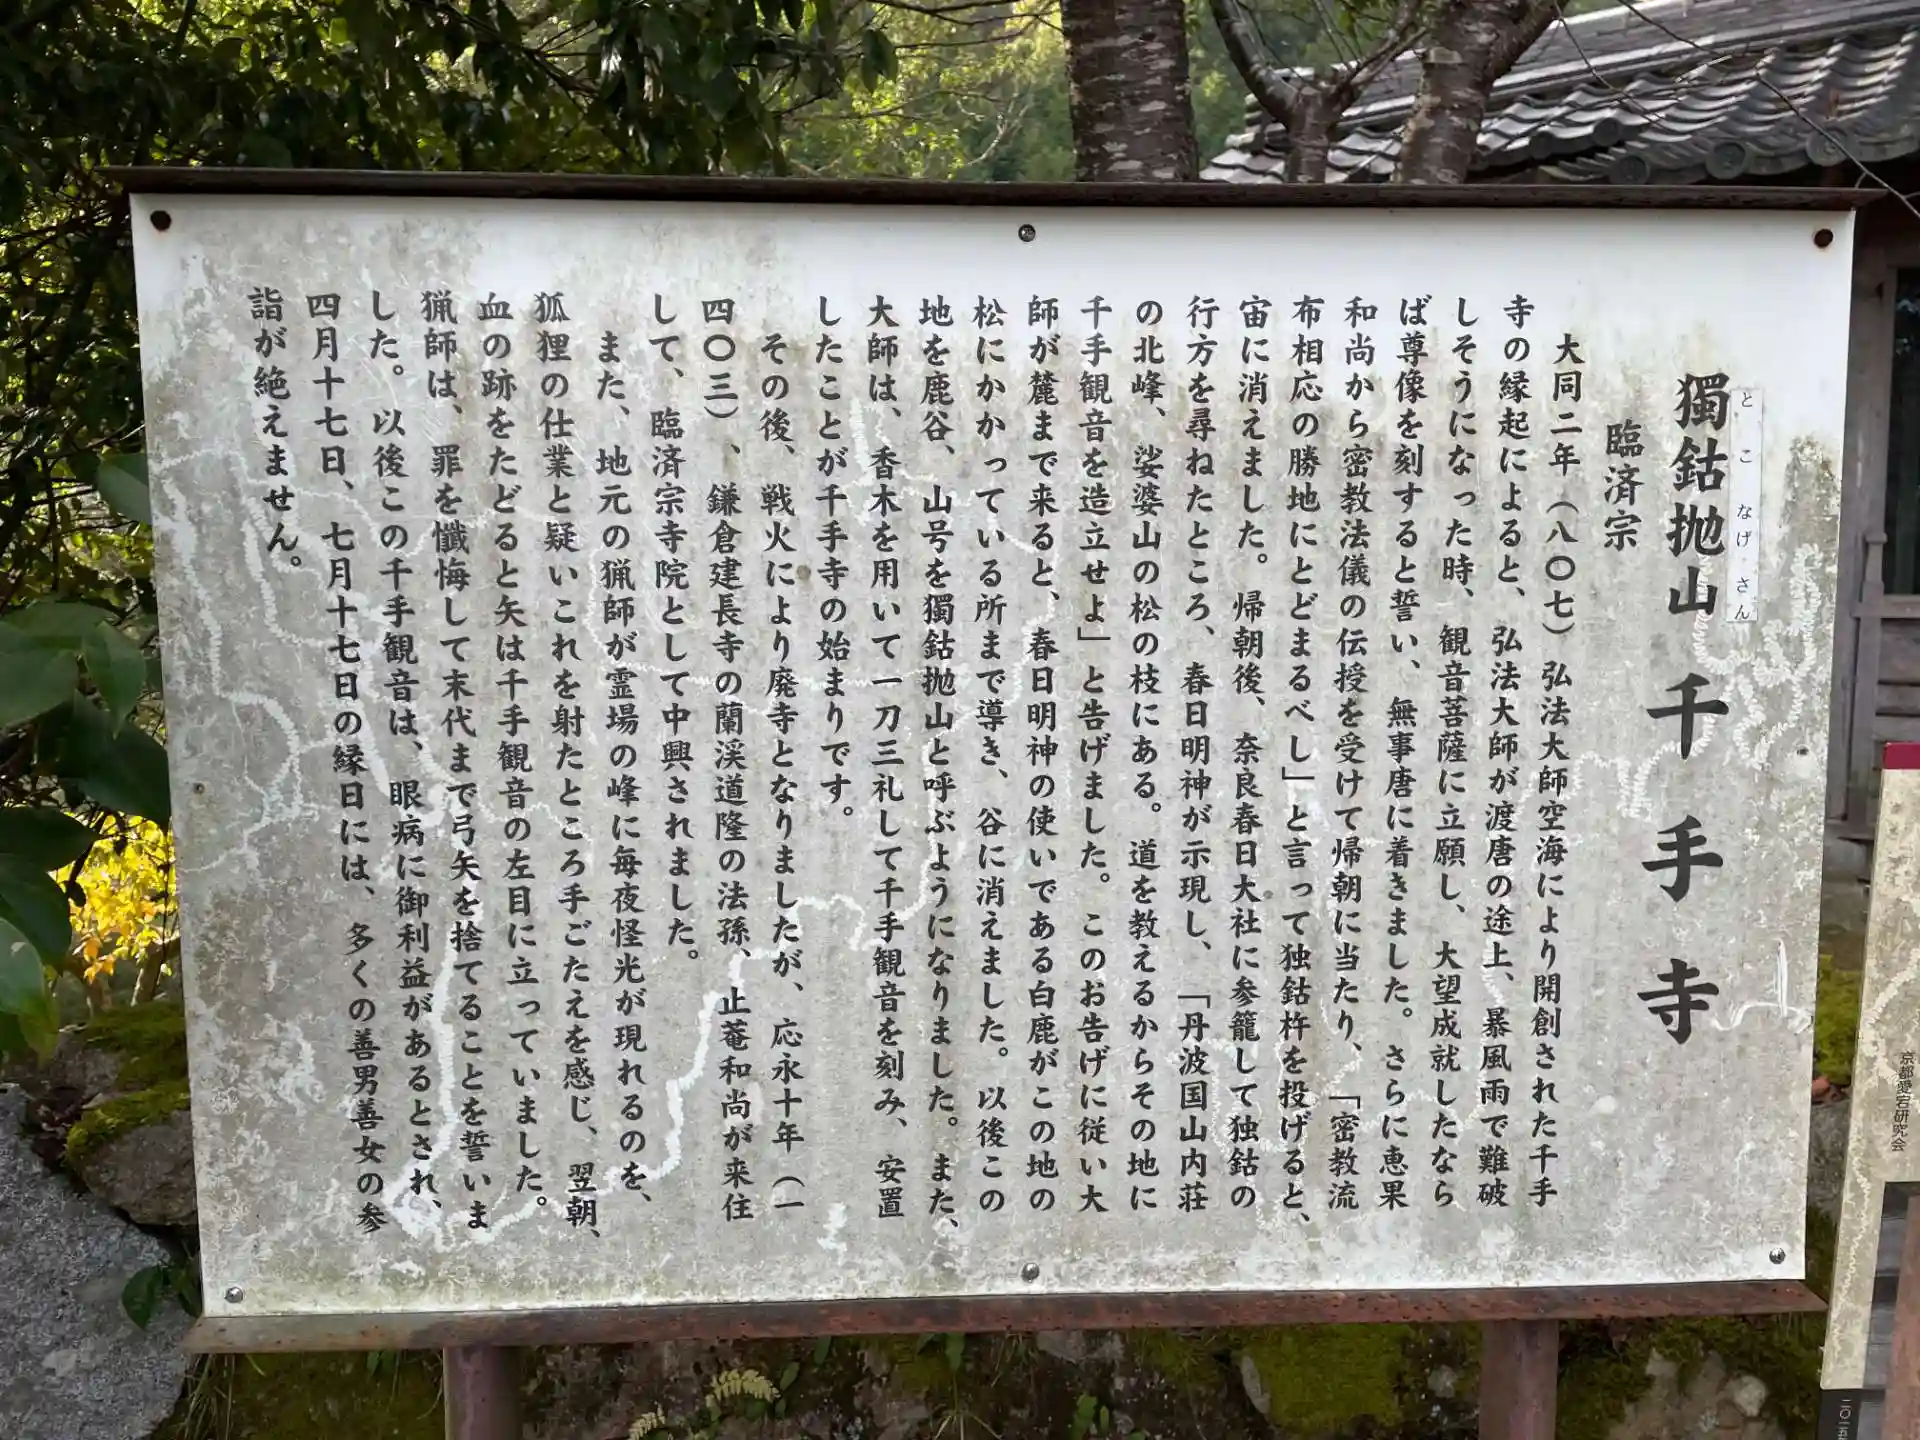 獨鈷抛山 千手寺
とこ なげ さん
臨済宗
大同二年（八〇七）弘法大師空海により開創された千手
寺の縁起によると、弘法大師が渡唐の途上、暴風雨で難破
しそうになった時、観音菩薩に立願し、大望成就したなら
ば尊像を刻すると誓い、無事唐に着きました。さらに恵果
和尚から密教法儀の伝授を受けて帰朝に当たり、「密教流
布相応の勝地にとどまるべし」と言って独鈷杵を投げると、
宙に消えました。帰朝後、奈良春日大社に参籠して独鈷の
行方を尋ねたところ、春日明神が示現し、「丹波国山内荘
の北峰、娑婆山の松の枝にある。道を教えるからその地に
千手観音を造立せよ」と告げました。このお告げに従い大
師が麓まで来ると、春日明神の使いである白鹿がこの地の
松にかかっている所まで導き、谷に消えました。以後この
地を鹿谷、山号を獨鈷抛山と呼ぶようになりました。また、
大師は、香木を用いて一刀三礼して千手観音を刻み、安置
したことが千手寺の始まりです。
その後、戦火により廃寺となりましたが、応永十年（一
四〇三）、鎌倉建長寺の蘭渓道隆の法孫、止菴和尚が来住
して、臨済宗寺院として中興されました。
また、地元の猟師が霊場の峰に毎夜怪光が現れるのを、
狐狸の仕業と疑いこれを射たところ手ごたえを感じ、翌朝、
血の跡をたどると矢は千手観音の左目に立っていました。
猟師は、罪を懺悔して末代まで弓矢を捨てることを誓いま
した。以後この千手観音は、眼病に御利益があるとされ、
四月十七日、七月十七日の縁日には、多くの善男善女の参
詣が絶えません。
京都愛宕研究会